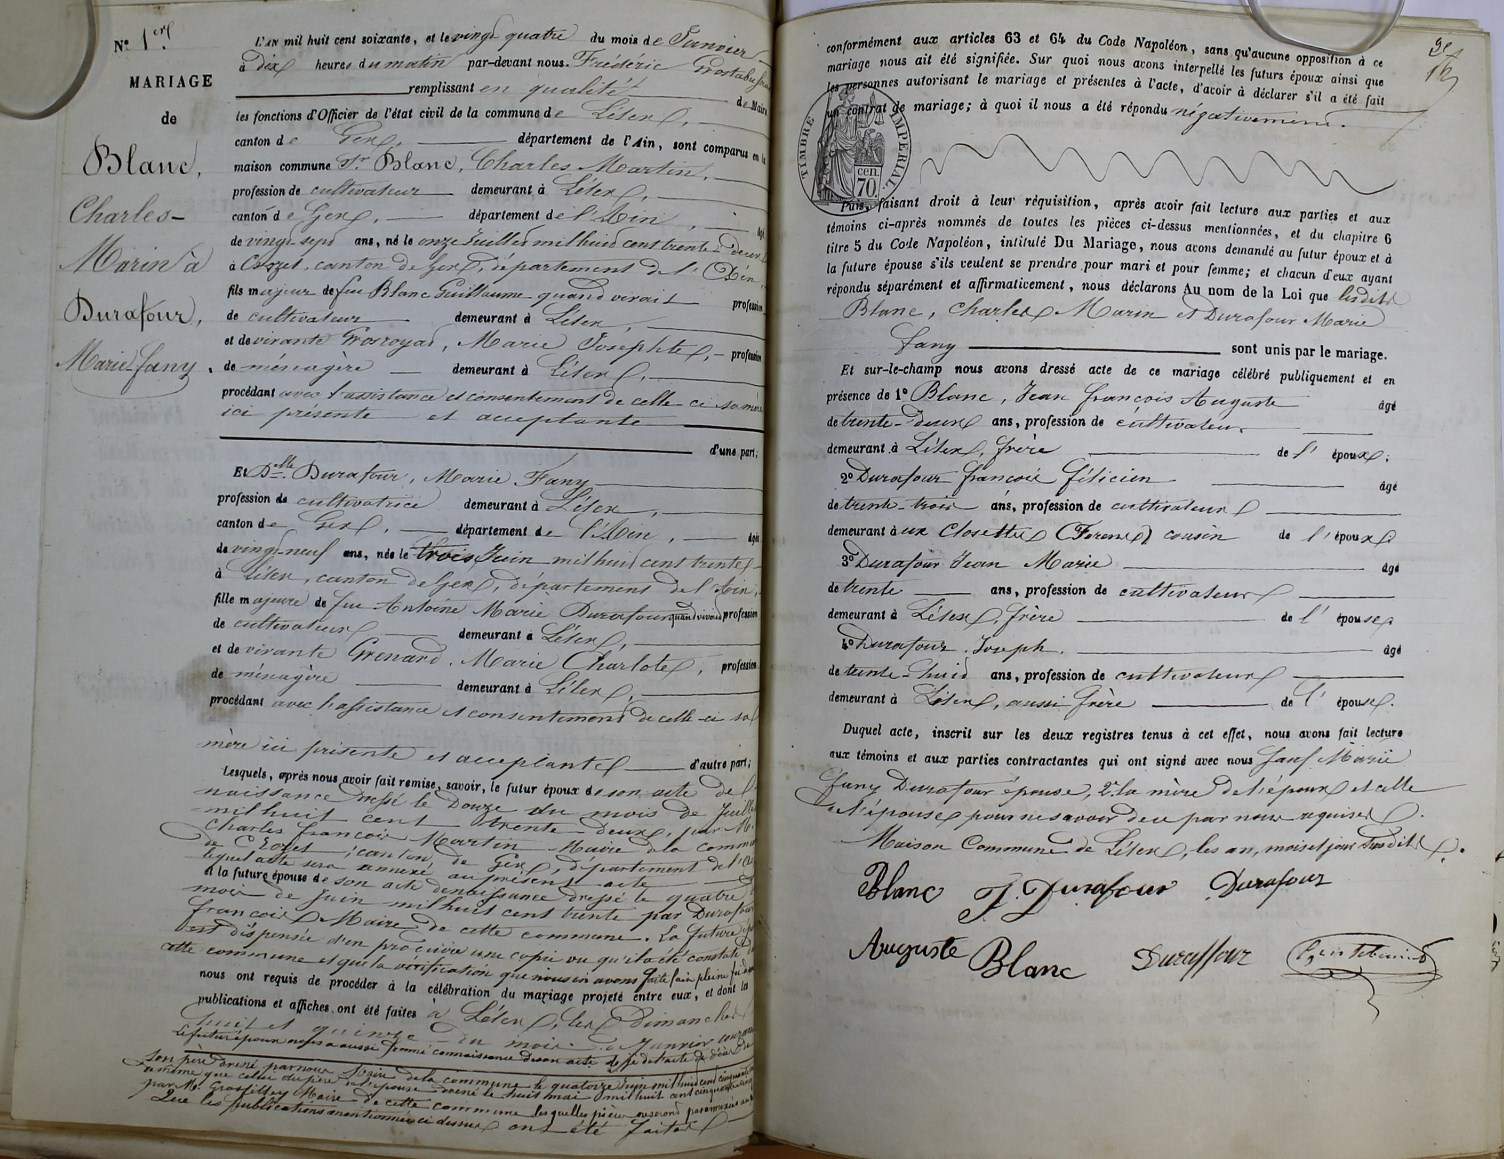 N° 1er.
MARIAGE
de
Blanc,
Charles-
Marin à
Durafour,
Marie fany.
L'AN mil huit cent soixante, et le vingt quatre du mois de Janvier
à dix heures du matin par-devant nous. Frédéric
remplissant en qualité de Maire
les fonctions d'Officier de l'état civil de la commune de Lélex,
canton de Gex, département de l'Ain, sont comparus en la
maison commune Sr. Blanc, Charles Martin,
profession de cultivateur demeurant à Lélex,
canton de Gex, département de l'Ain, âgé
de vingt sept ans, né le onze Juillet mil huit cent trente deux
à Crozet, canton de Gex, département de l'Ain,
fils majeur de feu Blanc Guillaume quand vivait profession
de cultivateur demeurant à Lélex,
et de vivante Grosroyat, Marie Josephte, profession
de ménagère demeurant à Lélex,
procédant avec l'assistance et consentement de celle ci sa mère
ici présente et acceptante
d'une part;
Et Dlle Durafour, Marie Fany
profession de cultivatrice demeurant à Lélex,
canton de Gex, département de l'Ain, âgée
de vingt-neuf ans, née le trois Juin mil huit cent trente
à Lélex, canton de Gex, département de l'Ain,
fille majeure de feu Antoine Marie Durafour quand vivait profession
de cultivateur demeurant à Lélex,
et de vivante Grenard, Marie Charlote, profession
de ménagère demeurant à Lélex,
procédant avec l'assistance et consentement de celle-ci sa
mère ici présente et acceptante d'autre part;
Lesquels, après nous avoir fait remise, savoir, le futur époux de son acte de
naissance dressé le Douze du mois de Juillet
mil huit cent trente deux, par Mr
Charles françois Martin Maire de la commune
de Crozet, canton de Gex, département de l'Ain
lequel acte sera annexé au présent acte
et la future épouse de son acte de naissance dressé le quatre
mois de Juin mil huit cent trente par Durafour
françois Maire de cette commune. La future
est dispensée d'en procurer une copie vu qu'il a été constaté
cette commune et que la vérification que nous en avons faite fait pleine foi
nous ont requis de procéder à la célébration du mariage projeté entre eux, et dont les
publications et affiches ont été faites à Lélex, les Dimanches
huit et quinze du mois de Janvier courant
Le futur époux nous a aussi donné connaissance de son acte de l'acte de décès de
son père dressé par nous Maire de la commune le quatorze Juin mil huit cent cinquante
de même que celui du père de l'épouse dressé le huit mai mil huit cent cinquante
par Mr. Grosfilley Maire de cette commune lesquelles pièces ne seront pas annexées
Que les publications mentionnées ci dessus ont été faites
conformément aux articles 63 et 64 du Code Napoléon, sans qu'aucune opposition à ce
mariage nous ait été signifiée. Sur quoi nous avons interpellé les futurs époux ainsi que
les personnes autorisant le mariage et présentes à l'acte, d'avoir à déclarer s'il a été fait
un contrat de mariage; à quoi il nous a été répondu négativement.
TIMBRE IMPÉRIAL.
70 cen.
Puis, faisant droit à leur réquisition, après avoir fait lecture aux parties et aux
témoins ci-après nommés de toutes les pièces ci-dessus mentionnées, et du chapitre 6
titre 5 du Code Napoléon, intitulé Du Mariage, nous avons demandé au futur époux et à
la future épouse s'ils veulent se prendre pour mari et pour femme; et chacun d'eux ayant
répondu séparément et affirmativement, nous déclarons Au nom de la Loi que lesdits
Blanc, Charles Marin et Durafour Marie
fany sont unis par le mariage.
Et sur-le-champ nous avons dressé acte de ce mariage célébré publiquement et en
présence de 1° Blanc, Jean françois Auguste âgé
de trente-deux ans, profession de cultivateur
demeurant à Lélex, frère de l'époux;
2° Durafour françois félicien âgé
de trente-trois ans, profession de cultivateur
demeurant à aux Closettes (Forens) cousin de l'époux
3° Durafour Jean Marie âgé
de trente ans, profession de cultivateur
demeurant à Lélex, frère de l'épouse
4° Durafour Joseph âgé
de trente-huit ans, profession de cultivateur
demeurant à Lélex, aussi frère de l'épouse.
Duquel acte, inscrit sur les deux registres tenus à cet effet, nous avons fait lecture
aux témoins et aux parties contractantes qui ont signé avec nous sauf Marie
fany Durafour épouse, 2° la mère de l'époux et celle
de l'épouse pour ne savoir de ce par nous requises.
Maison Commune de Lélex, les an, mois et jour susdits.
Blanc J. Durafour Durafour
Auguste Blanc Duraffour